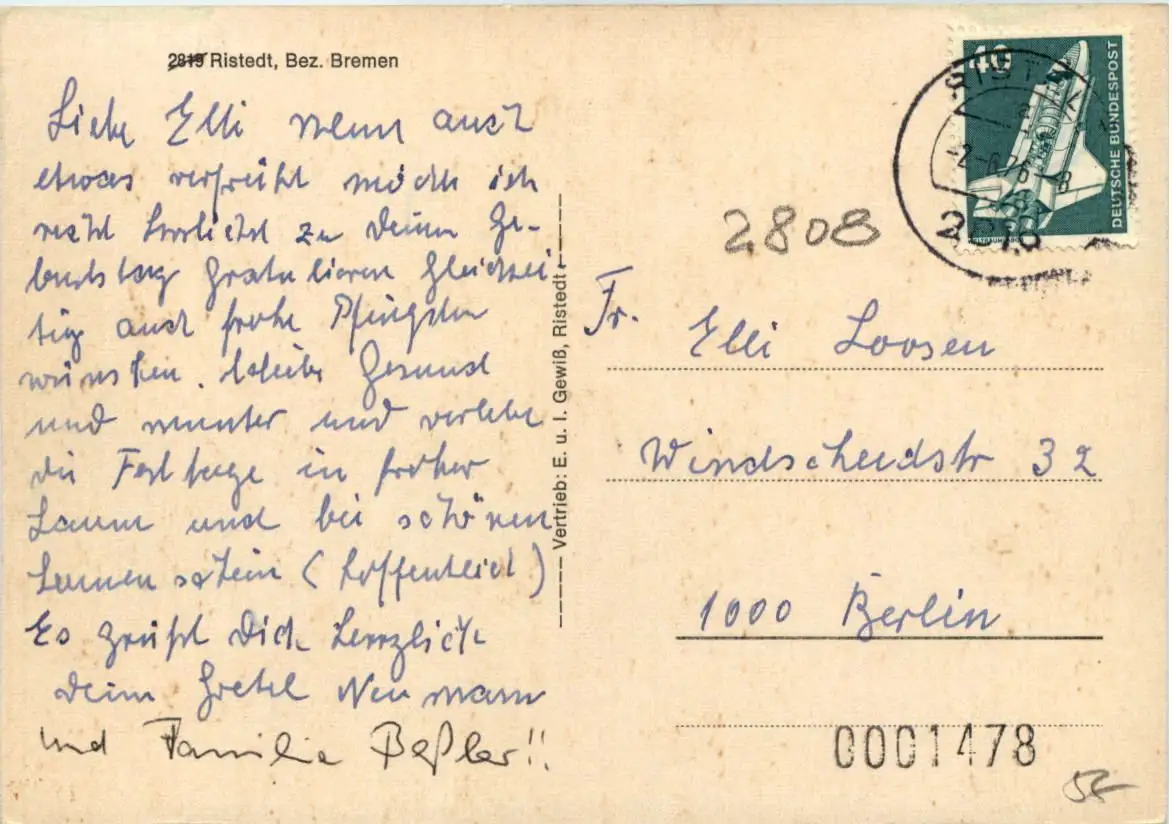 2819 Ristedt, Bez. Bremen
Liebe Elli wenn auch
etwas verfrüht möchte ich
recht herzlichst zu Deinem Ge-
burtstag Gratulieren Gleichzei
tig auch frohe Pfingsten
wünschen. bleibe Gesund
und munter und verlebe
die Festtage in froher
Laune und bei schönen
Sonnenschein (hoffentlich)
Es grüßt Dich herzlichst
Deine Gretel Neumann
und Familie Beßler!!
Vertrieb: E. u. I. Gewiß, Ristedt
40
DEUTSCHE BUNDESPOST
RIST
-2.-6.76-8
2808
Fr. Elli Loosen
Windscheidstr 32
1000 Berlin
0001478
5€